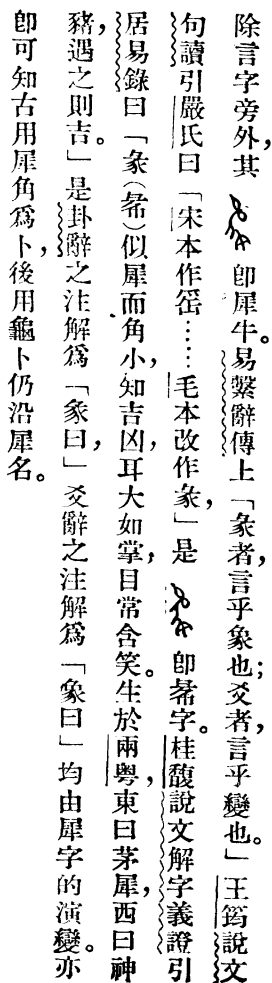 除言字旁外，其　卽犀牛。易繫辭傳上「彖者，言乎象也；爻者，言乎變也。」王筠說文
句讀引嚴氏曰「宋本作㣇……毛本改作彖，」是　卽㣇字。桂馥說文解字義證引
居易錄曰「彖（㣇）似犀而角小，知吉凶，耳大如掌，目常含笑。生於兩粵，東曰茅犀，西曰神
豬，遇之則吉。」是卦辭之注解爲「彖曰，」爻辭之注解爲「象曰」均由犀字的演變。亦
卽可知古用犀角爲卜，後用龜卜仍沿犀名。